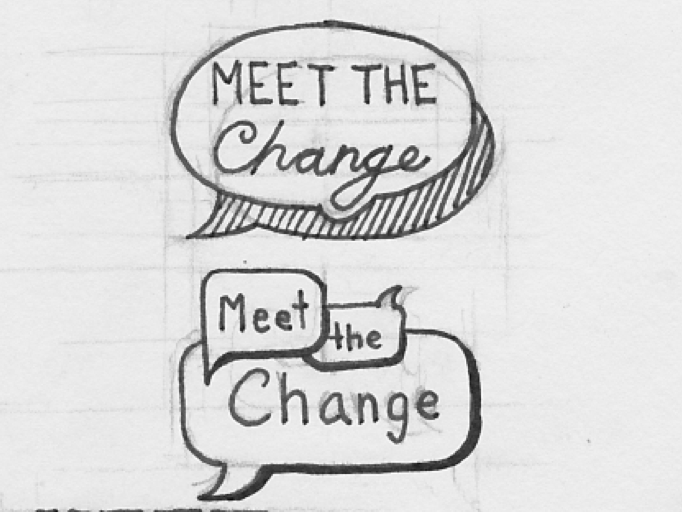 MEET THE
Change
Meet
the
Change